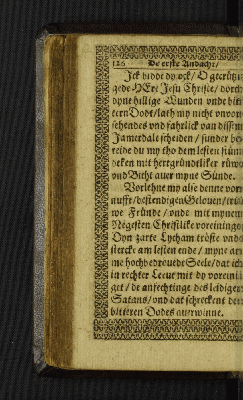 126 De erste Andacht/
Ick bidde dy ock/ O getrüwste
gede HErr Jesu Christe/ dorch
dyne hillige Wunden vnde bit-
tern Dodt/ lath my nicht vnvor-
sehendes vnd fahrlick van dissem
Jamerdall scheiden/ sunder be-
reide du my tho dem lesten stünd-
deken mit herrgründtliker rüwe
vnd Bicht auer myne Sünde.
Vorlehne my alse denne vor-
nufft/ bestendigen Gelouen/ trü-
we Fründe/ vnde mit mynem
Negesten Christlike voreininge.
Dyn zarte Lycham tröste vnde
stercke am lesten ende/ myne ar-
me hochbedrouede Seele/ dat ick
in rechter Leeue mit dy voreini-
get/ de anfechtinge des leidigen
Satans/ vnd dat schreckent des
bitteren Dodes auerwinne.